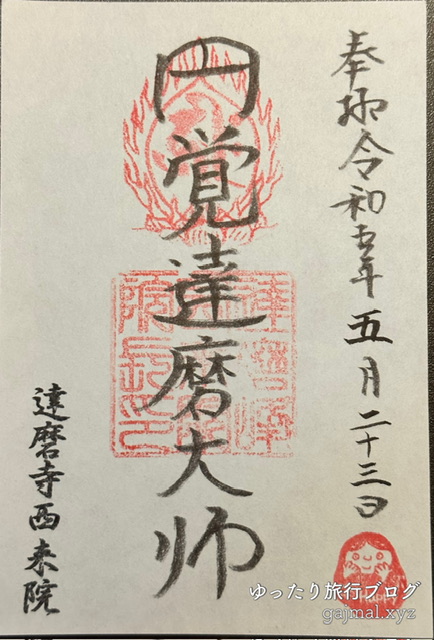 奉拝令和五年五月二十三日
円覚達磨大师
達磨寺西来院
ゆったり旅行ブログ
gajmal.xyz